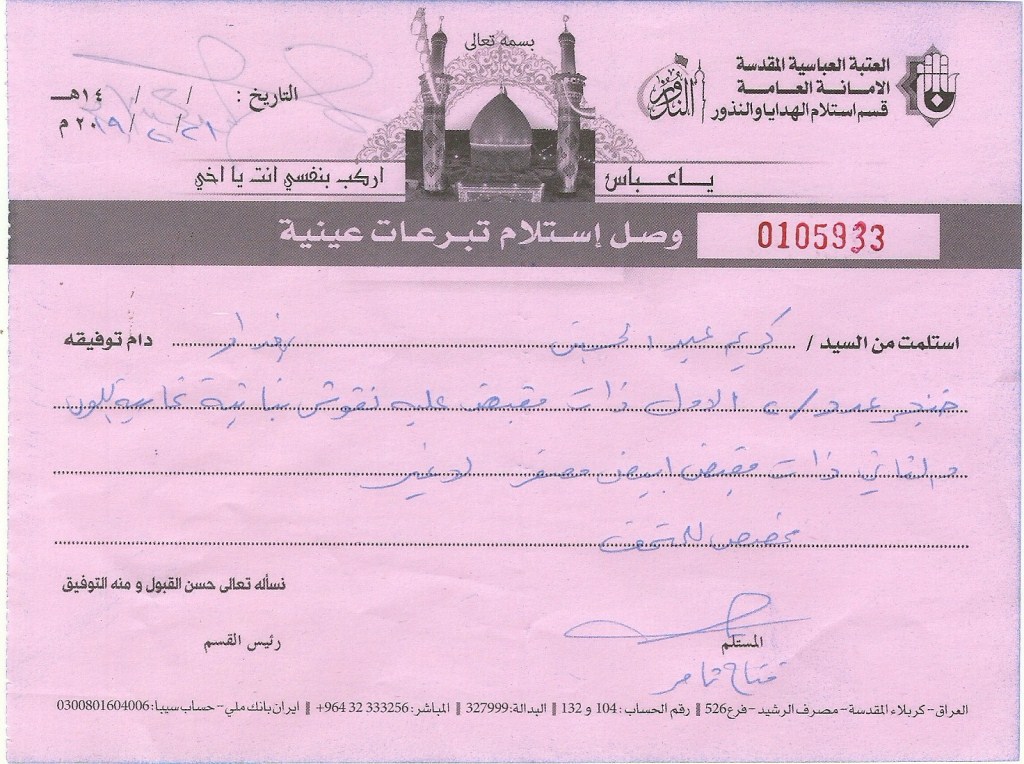 بسمه تعالى
العتبة العباسية المقدسة
الامانة العامة
قسم استلام الهدايا والنذور
النذور
التاريخ : / / ١٤هـ
٢١/ /٢٠١٩ م
ياعباس
اركب بنفسي انت يا اخي
وصل إستلام تبرعات عينية
0105933
استلمت من السيد / كريم عبد الحسين بغداد دام توفيقه
خنجر عدد/٢ الاول ذات مقبض عليه نقوش نباتية نحاسية اللون
والثاني ذات مقبض ابيض مصفر لاغير
مخصص للمتحف
نسأله تعالى حسن القبول و منه التوفيق
المستلم
رئيس القسم
ثامر
العراق - كربلاء المقدسة - مصرف الرشيد - فرع526 || رقم الحساب : 104 و 132 || البدالة:327999 || المباشر:333256 32 964+ || ايران بانك ملي - حساب سيبا:0300801604006